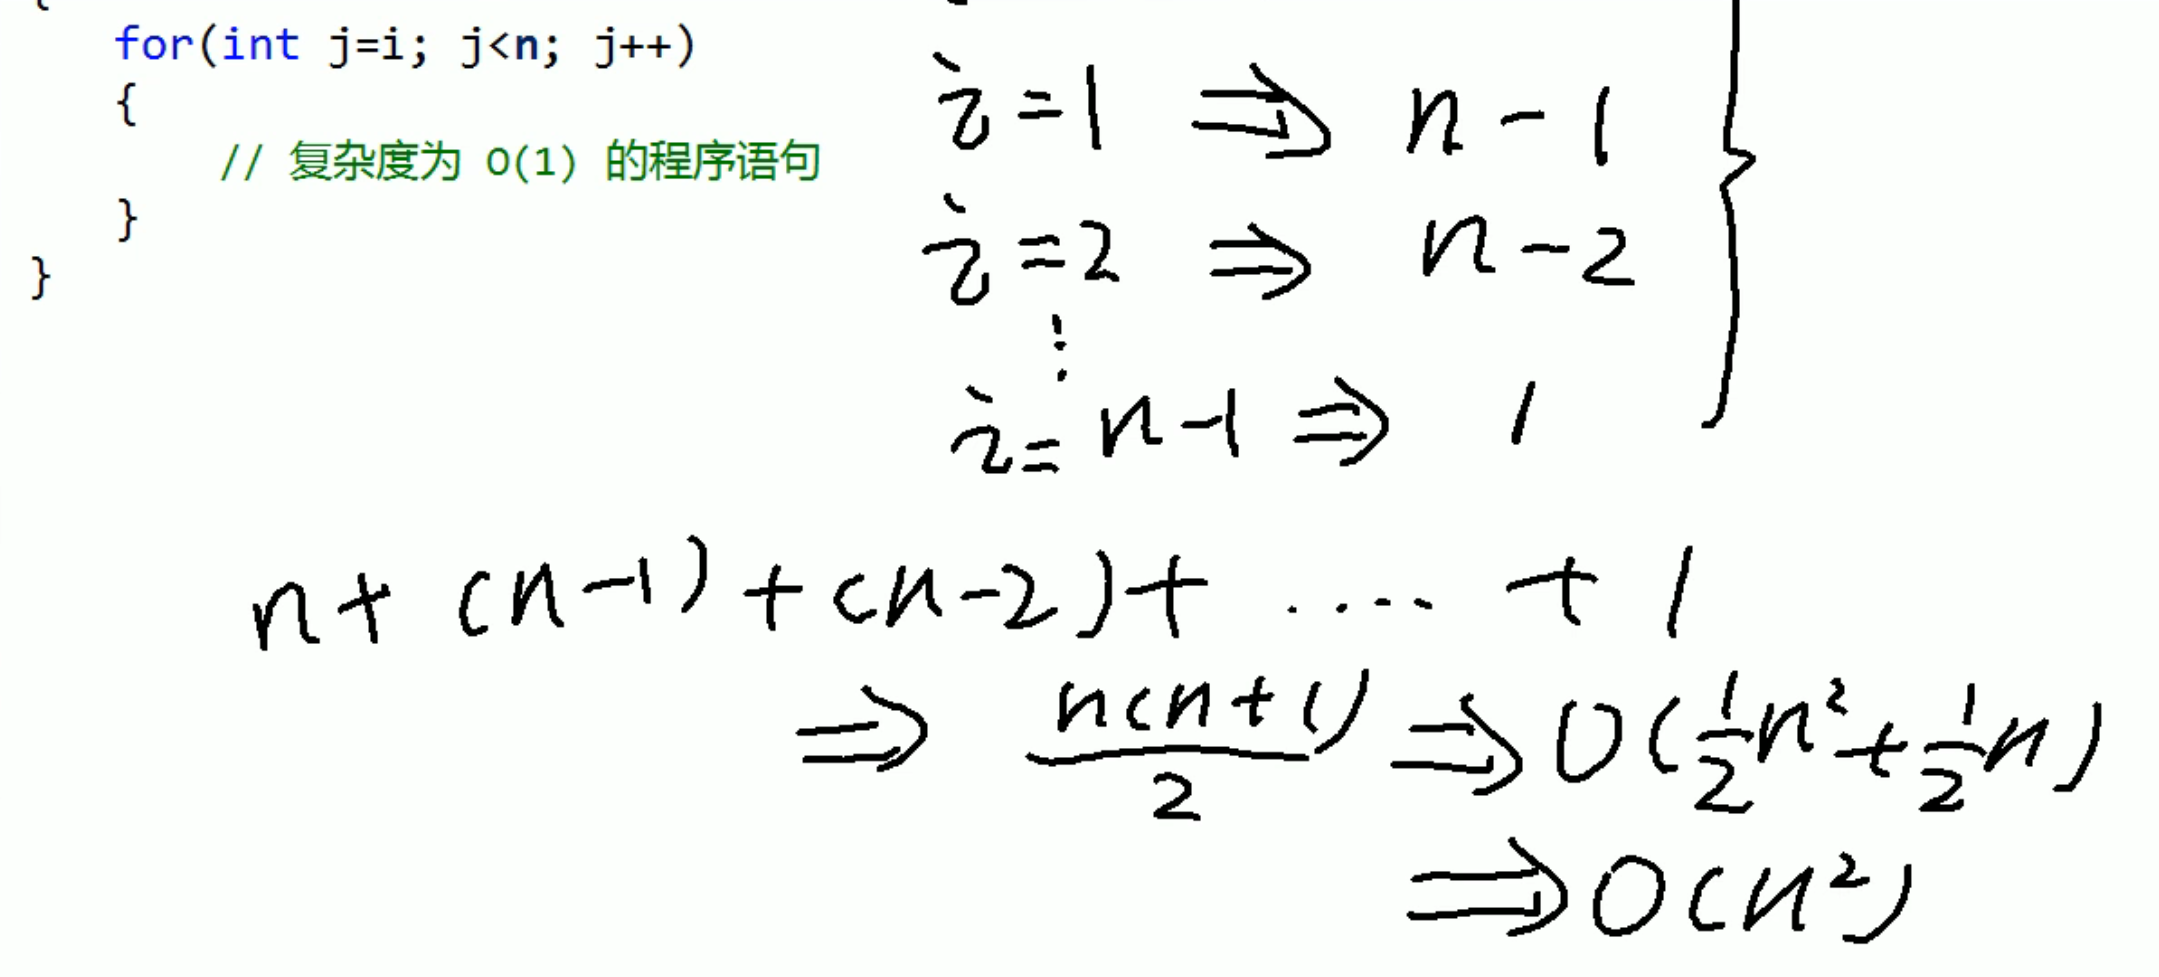 for(int j=i; j<n; j++)
{
// 复杂度为 O(1) 的程序语句
}
}
i=1 ⇒ n-1
i=2 ⇒ n-2
⋮
i=n-1 ⇒ 1
n+(n-1)+(n-2)+ ..... +1
⇒ n(n+1)/2 ⇒ O(1/2n²+1/2n)
⇒ O(n²)